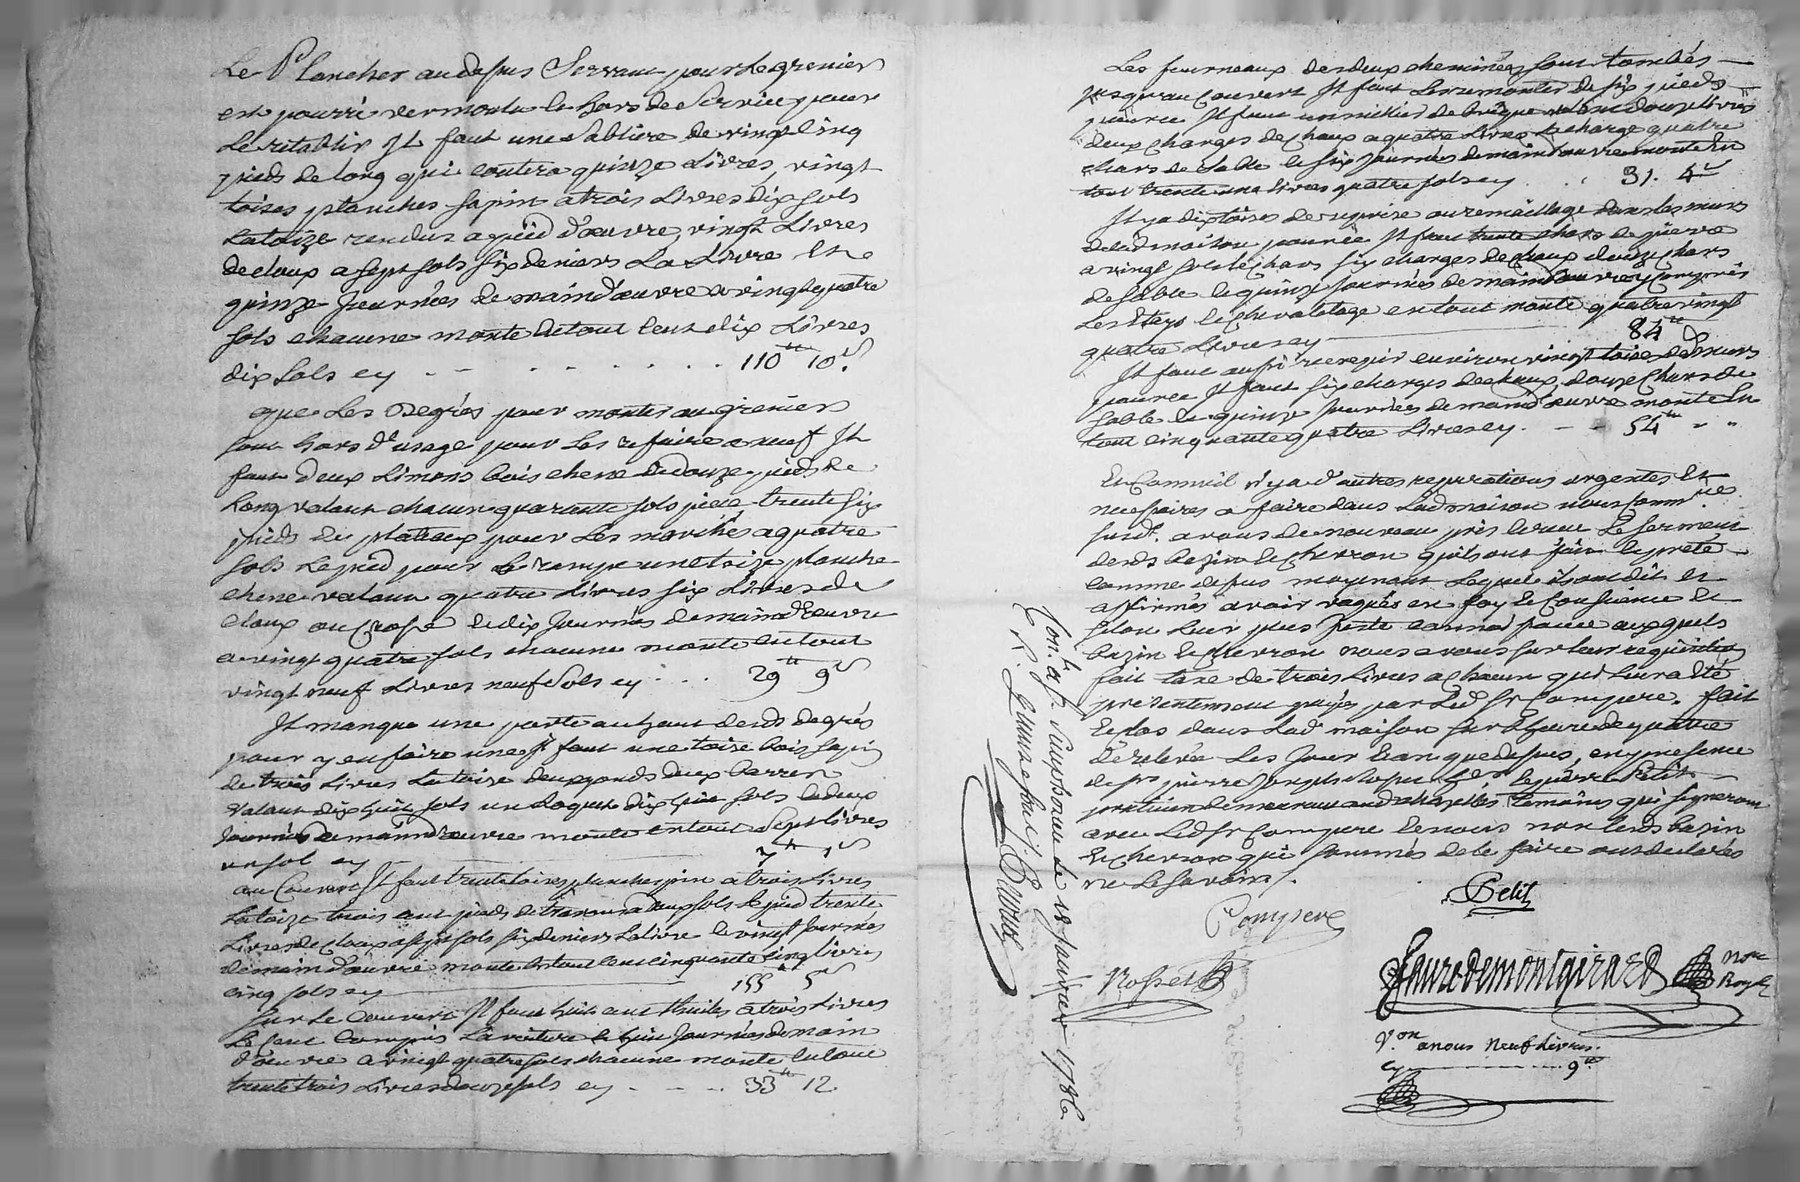 Le Plancher audessus Servant pour le grenier
est pourri vermoulu et hors de Service pour
Le retablir Il faut une Sabliere de vingt cinq
pieds de long qui coutera quinze Livres, vingt
toises planches sapin a trois Livres dix sols
La toize rendus a pied d'œuvre, vingt Livres
de cloux a sept sols six deniers La Livre Et
quinze Journées de main d'œuvre a vingt quatre
sols chacune monte de tout Cent dix Livres
dix sols cy - - - 110 tt 10 s
que Les Degrés pour monter au grenier
sont hors d'usage pour Les refaire a neuf Il
faut deux Limons bois chene de douze pieds de
Long valant chacun quarante sols piece, trente six
pieds de plateaux pour Les marches a quatre
sols Le pied pour la rampe une toize planche
chene valant quatre Livres six Livres de
cloux et dix Journées de main d'œuvre
a vingt quatre sols chacune monte en tout
vingt neuf Livres neuf sols cy . . . 29 tt 9 s
Il manque une porte au haut desds degrés
pour y en faire une Il faut une toise bois sapin
de trois Livres La toise deux gonds deux barres
valant dix huit sols un Loquet dix huit sols et deux
Journées de main d'œuvre monte en tout Sept Livres
un sol cy 7 tt 1 s
au Couvert Il faut trente toises planches pin a trois Livres
La toize trois cent pieds de travons a deux sols Le pied trente
Livres de cloux a sept sols six deniers La Livre et vingt Journées
de main d'œuvre monte en tout Cent cinquante cinq Livres
cinq sols cy 155 tt 5 s
Sur Le Couvert Il faut huit cent thuiles a trois Livres
Le Cent compris La voiture et huit Journées de main
d'œuvre a vingt quatre sols chacune monte en tout
trente trois Livres douze sols cy - - - 33 tt 12
Les fourneaux des deux cheminées sont tombés
jusqu'au Couvert Il faut Les remonter de six pieds
deux charges de chaux a quatre Livres La charge quatre
chars de sable et six Journées de main d'œuvre monte en
tout trente une Livres quatre sols cy . . 31. 4 s
Il y a dix toises de reprise ou remaillage dans Les murs
de lad maison pour ce Il faut trente chars de pierre
a vingt sols Le chars six charges de chaux douze chars
de sable et quinze Journées de main d'œuvre y compris
Les Etays et chevaletage en tout monte quatre vingt
quatre Livres cy 84 tt
Il faut aussi recrepir environ vingt toises desds murs
pour ce Il faut six charges de chaux, douze Chars de
sable et quinze Journées de main d'œuvre monte En
tout cinquante quatre Livres cy - - - 54 tt " "
Et Comme il n'y a d'autres reparations urgentes Et
necessaires a faire dans Lad maison nous Comm.re
susd. avons de nouveau pris et reçu Le serment
desds bazin et cherron qu'ils ont fait et preté
comme dessus moyenant Lequel ils ont dit et
affirmés avoir vaqués en foy et Conscience et
selon Leur plus Juste connoissance auxquels
bazin et cherron nous avons sur Leur requisition
fait taxe de trois Livres a chacun qui Leur a été
presentement payé par Led Sr Compere. fait
et clos dans Lad maison sur L'heure de quatre
de relevée Les Jour et an que dessus, en presence
de Sr pierre Joseph et Sr pierre Petit
praticien demeurant temoins qui signeront
avec Led Sr Compere et nous non Lesds bazin
et cherron qui sommés de le faire ont declarés
ne Le savoir.
Compere
Petit
Rosset
Fauredemontgirard
Non
Roy
V.on
a nous Neuf Livres.
cy 9 tt
Con.lé a St Simphorien Le 18 Janvier 1786
R. quinze sols